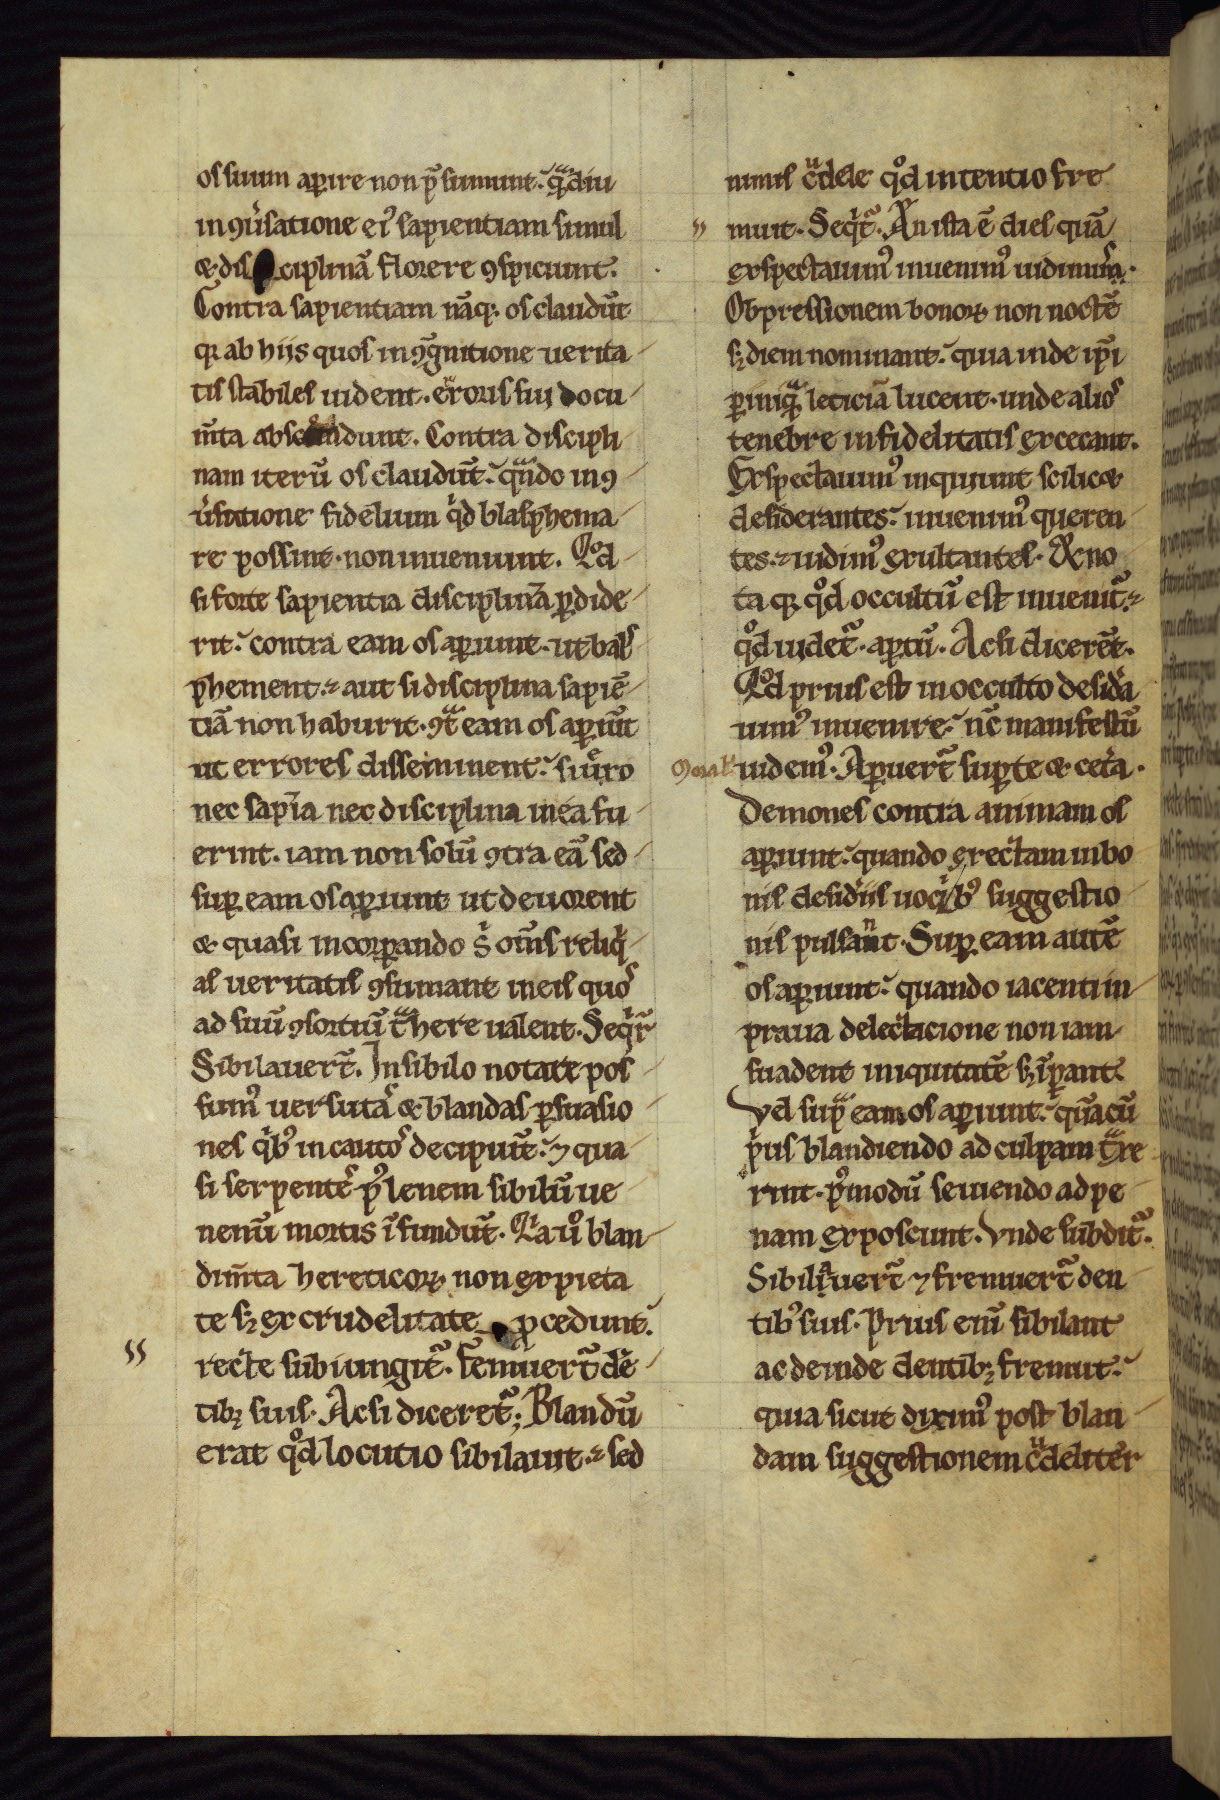 os suum aꝑire non p̄sumunt. qᵃ̄diu
in ꝯuˀsatione eiꝰ sapientiam simul
⁊ disciplinā florere ꝯspiciunt.
Contra sapientiam nāqꝫ os claudūt
qꝫ ab hiis quos in ꝯgᵃnitione uerita
tis stabiles uident. erᵃroris sui docu
m̄ta abscundunt. Contra discipli
nam iterū os claudūt. qᵃndo in ꝯ
uˀsatione fidelium qⁱd blasphema
re possint. non inueniunt. Qͦd
si forte sapientia disciplinā ꝑdide
rit. contra eam os aꝑiunt. ut blasˢ
phement. aut si disciplina sapiē
tiā non habuerit. ꝯtᵃ eam os aꝑiūt
ut errores disseminent. si uˀo
nec sapīa nec disciplina in ea fu
erint. iam non solū ꝯtra eā sed
suꝑ eam os aꝑiunt ut deuorent
⁊ quasi incorꝑando sⁱ om̄s reliqⁱ
as ueritatis ꝯsumant in eis quoˢ
ad suū ꝯsortiū tᵃhere ualent. Seqⁱt᷑
Sibilauert̄. In sibilo notare pos
sumꝰ uersutaˢ ⁊ blandas ꝑsuasio
nes qⁱbꝰ incautoˢ decipiūt. ⁊ qua
si serpenteˢ pꝰ lenem sibilū ue
nenū mortis īfundūt. Qⁱa uͦ blan
dim̄ta hereticoꝝ non ex pieta
te sꝫ ex crudelitate ꝓcedunt.
recte subiungit᷑. fremuert̄ dē
tibꝫ suis. Ac si diceret᷑; Blandū
erat qͦd locutio sibilauit. sed
nimis cᵘdele qͦd intentio fre
muit. Seqⁱt᷑. En ista ē dies quā
exspectauimꝰ inuenimꝰ uidimus.
Obpressionem bonoꝝ non noctē
sꝫ diem nominant. quia inde ip̄i
ꝑ iniqᵃ leticiā lucent. unde alioˢ
tenebre infidelitatis excecant.
Exspectauimꝰ inquiunt scilicet
desiderantes. inuenimꝰ queren
tes. uidimꝰ exultantes. Et no
ta qꝫ qͦd occultū est inuenit᷑.
qͦd uidet᷑. aꝑtū. Ac si dicerēt.
Qͦd prius est in occulto desidˀa
uimꝰ inuenire. nc̄ manifestū
ꝯoral uidemꝰ. Aꝑuert̄ suꝑ te ⁊ cetˀa.
Demones contra animam os
aꝑiunt. quando erectam in bo
nis desidˀiis uocⁱbꝰ suggestio
nis pulsant. Suꝑ eam autē
os aꝑiunt. quando iacenti in
praua delectacione non iam
suadent iniquitatē sꝫ īꝑant.
Vel supᵃ eam os aꝑiunt. quā cū
pⁱus blandiendo ad culpam tᵃxe
rint. pꝰmodū seuiendo ad pe
nam exposcunt. Vnde subdit᷑.
Sibilauert̄ ⁊ fremuert̄ den
tibꝰ suis. Prius enī sibilant
ac deinde dentibꝫ fremūt.
quia sicut diximꝰ post blan
dam suggestionem cᵘdeliter